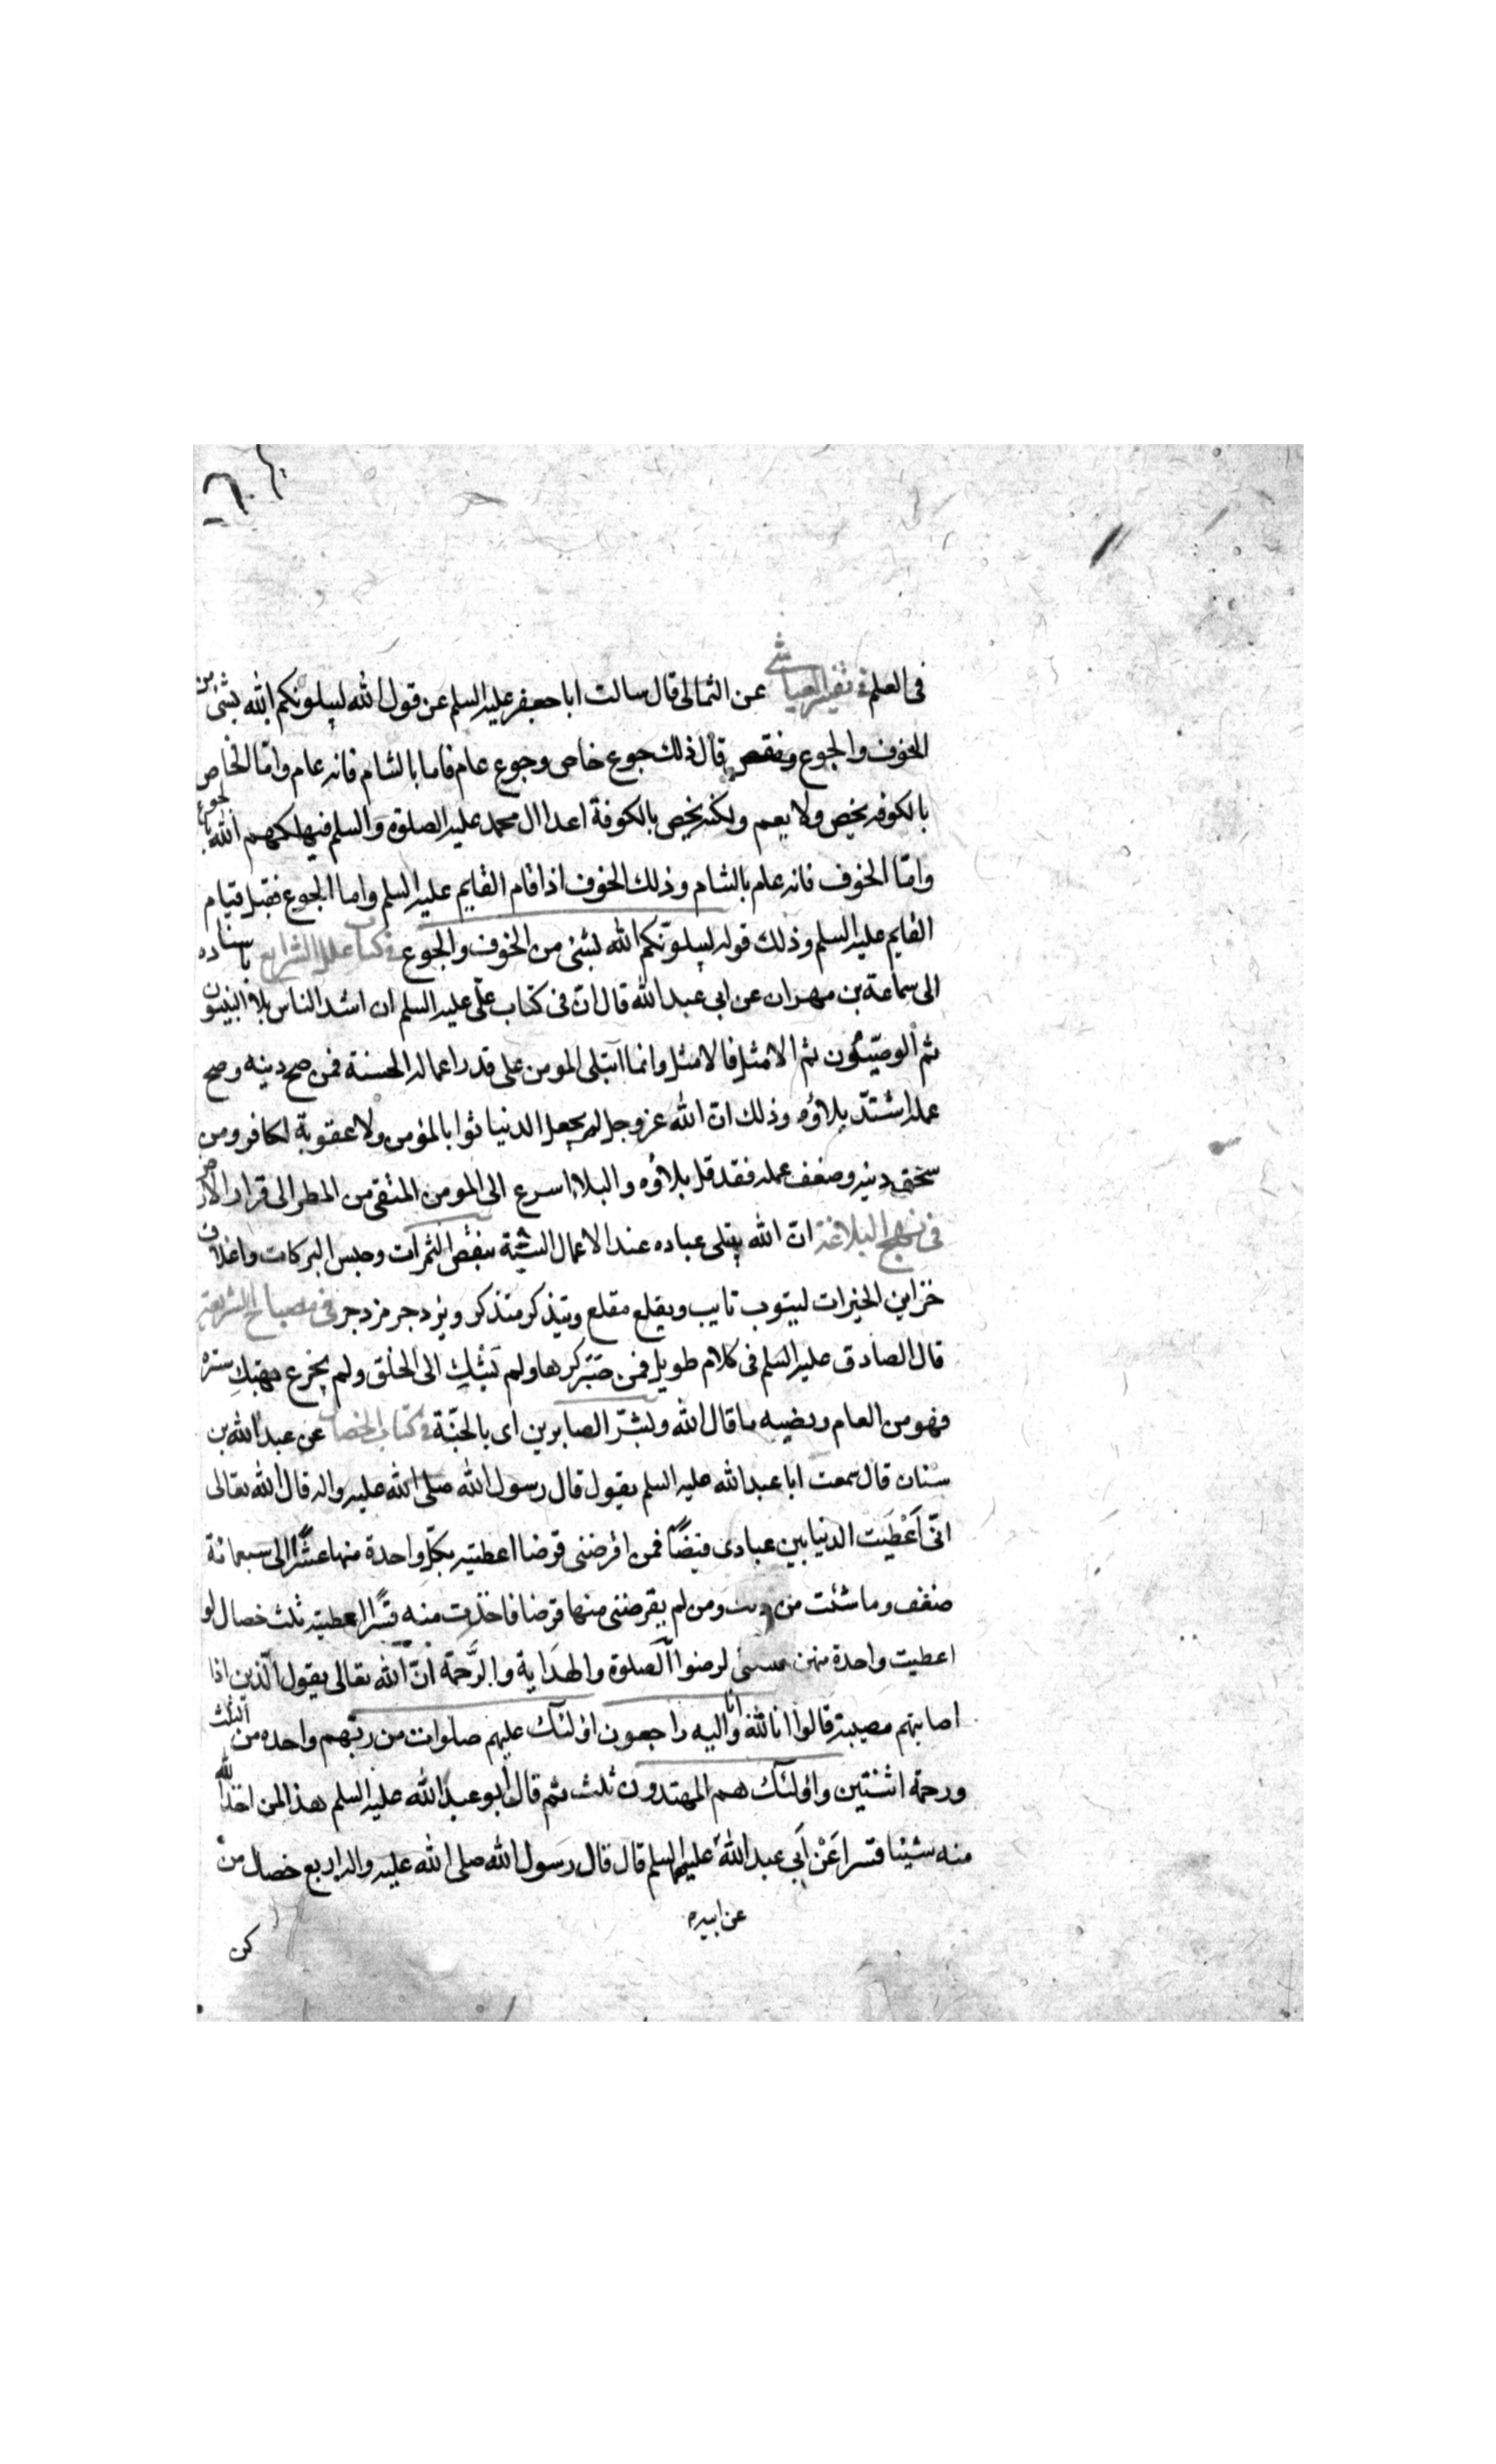 فى العلم فى تفسير العياشى عن الثمالى قال سالت ابا جعفر عليه السلم عن قول الله ليبلونكم الله بشئ من
الخوف والجوع ونقص قال ذلك جوع خاص وجوع عام فاما بالشام فانه عام واما الخاص
بالكوفه يخص ولا يعم ولكنه يخص بالكوفة اعدا ال محمد عليه الصلوة والسلم فيهلكهم الله بالجوع
وامّا الخوف فانه عام بالشام وذلك الخوف اذا قام القايم عليه السلم واما الجوع فقبل قيام
القايم عليه السلم وذلك قوله ليبلونّكم الله بشئ من الخوف والجوع فى كتاب علل الشرايع باسناده
الى سماعة بن مهران عن ابى عبد الله قال انّ فى كتاب علّى عليه السلم ان اشد الناس بلاء النبيون
ثم الوصيّون ثم الامثل فالامثل وانما ابتلى المومن على قدر اعماله الحسنة فمن صح دينه وصح
عمله اشتدّ بلاؤه وذلك انّ الله عز وجل لم يجعل الدنيا ثوابا لمؤمن ولا عقوبة لكافر ومن
سخف دينه وضعف عمله فقد قل بلاؤه والبلاء اسرع الى المومن المتقى من المطر الى قرار الارض
فى نهج البلاغة انّ الله يبتلى عباده عند الاعمال السيّئة بنقص الثمرات وحبس البركات واغلاق
خزاين الخيرات ليتوب تايب ويقلع مقلع ويتذكر متذكر ويزدجر مزدجر فى مصباح الشريعة
قال الصادق عليه السلم فى كلام طويل فمن صَبَر كرها ولم يَشْكِ الى الخلق ولم يجزع بهتك ستره
فهو من العام ونصيبه ما قال الله وبشّر الصابرين اى بالجنّة فى كتاب الخصال عن عبد الله بن
سنان قال سمعت ابا عبد الله عليه السلم يقول قال رسول الله صلى الله عليه واله قال الله تعالى
انّى اَعْطَيت الدنيا بين عبادى فيضًا فمن اقرضنى قرضا اعطيته بكلّ واحدة منها عشرًا الى سبعمائة
ضعف وما شئت من ذلك ومن لم يقرضنى منها قرضا فاخذت منه قسرًا اعطيته ثلث خصال لو
اعطيت واحدة منهن لرضوا الصلوة والهداية والرَّحمة انّ الله تعالى يقول الّذين اذا
اصابتهم مصيبة قالوا انا لله وانا اليه راجعون اولئك عليهم صلوات من ربهم واحده من الثلث
ورحمة اثنتين واولئك هم المهتدون ثلث ثم قال ابو عبد الله عليه السلم هذا لمن اخذ الله
منه شيئا قسرا عَنْ اَبى عبد الله عليهما السلم قال قال رسول الله صلى الله عليه واله اربع خصال من
عن ابيه
كن